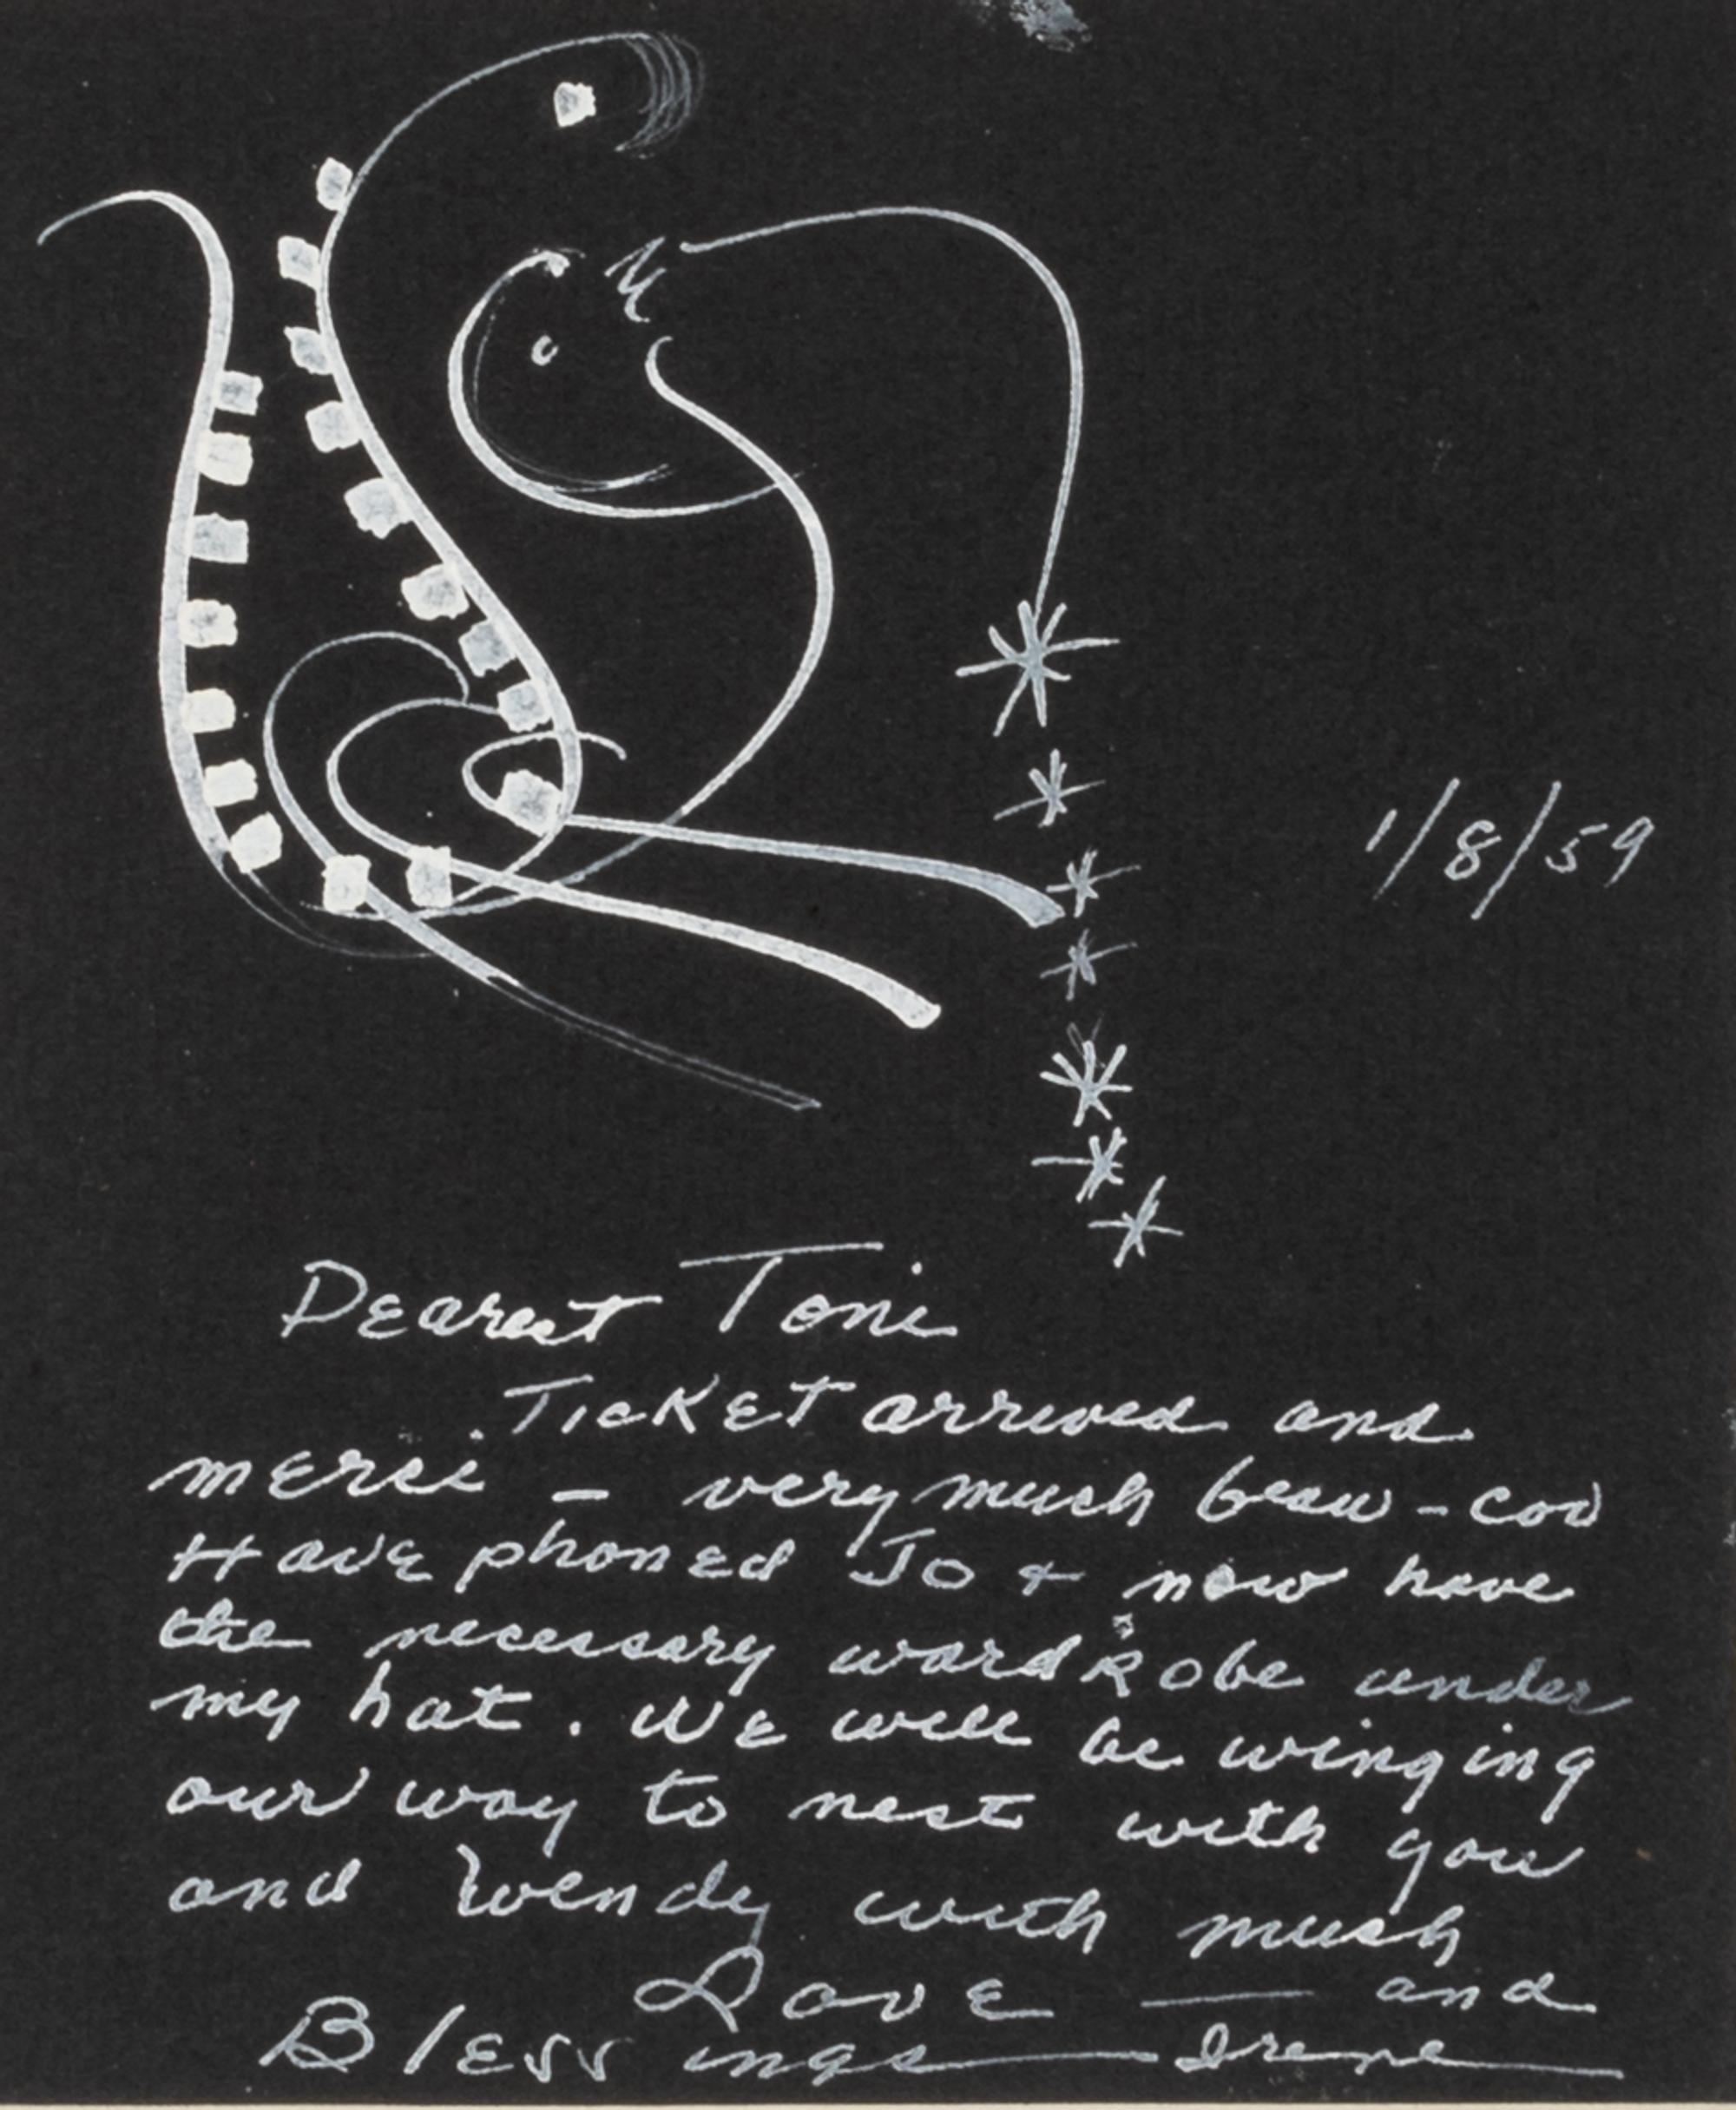 1/8/59
Dearest Toni
Ticket arrived and
merci – very much beau-cou
Have phoned Jo + now have
the necessary wardRobe under
my hat. We will be winging
our way to nest with you
and Wendy with much
Love — and
Blessings — Irene